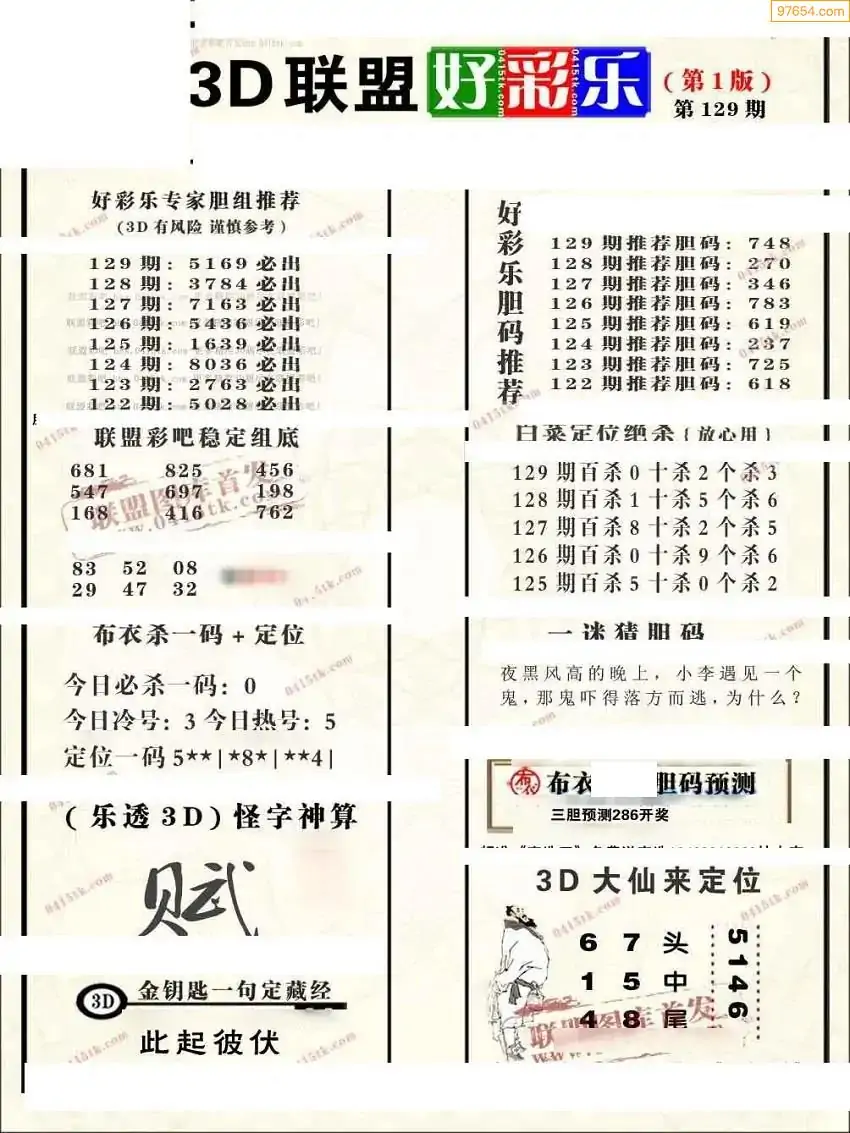 97654.com
3D联盟好彩乐
(第1版)
第129期
好彩乐专家胆组推荐
(3D有风险 谨慎参考)
129期:5169必出
128期:3784必出
127期:7163必出
126期:5436必出
125期:1639必出
124期:8036必出
123期:2763必出
122期:5028必出
联盟彩吧稳定组底
681 825 456
547 697 198
168 416 762
83 52 08
29 47 32
布衣杀一码+定位
今日必杀一码:0
今日冷号:3 今日热号:5
定位一码 5**|*8*|**4|
(乐透3D)怪字神算
赋
3D 金钥匙一句定藏经
此起彼伏
好彩乐胆码推荐
129期推荐胆码:748
128期推荐胆码:270
127期推荐胆码:346
126期推荐胆码:783
125期推荐胆码:619
124期推荐胆码:237
123期推荐胆码:725
122期推荐胆码:618
白菜定位绝杀{放心用}
129期百杀0十杀2个杀3
128期百杀1十杀5个杀6
127期百杀8十杀2个杀5
126期百杀0十杀9个杀6
125期百杀5十杀0个杀2
一迷猜胆码
夜黑风高的晚上,小李遇见一个
鬼,那鬼吓得落方而逃,为什么?
布衣 胆码预测
三胆预测286开奖
3D大仙来定位
6 7 头
1 5 中
4 8 尾
5146
联盟图库首发
www.0415tk.com